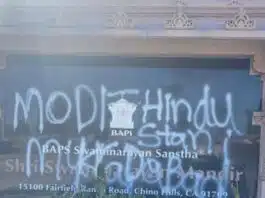 MODI Hindu
Stan
BAPS
BAPS Swaminarayan Sanstha
Shri Mandir
15100 Fairfield Ran Road, Chino Hills, CA 91709